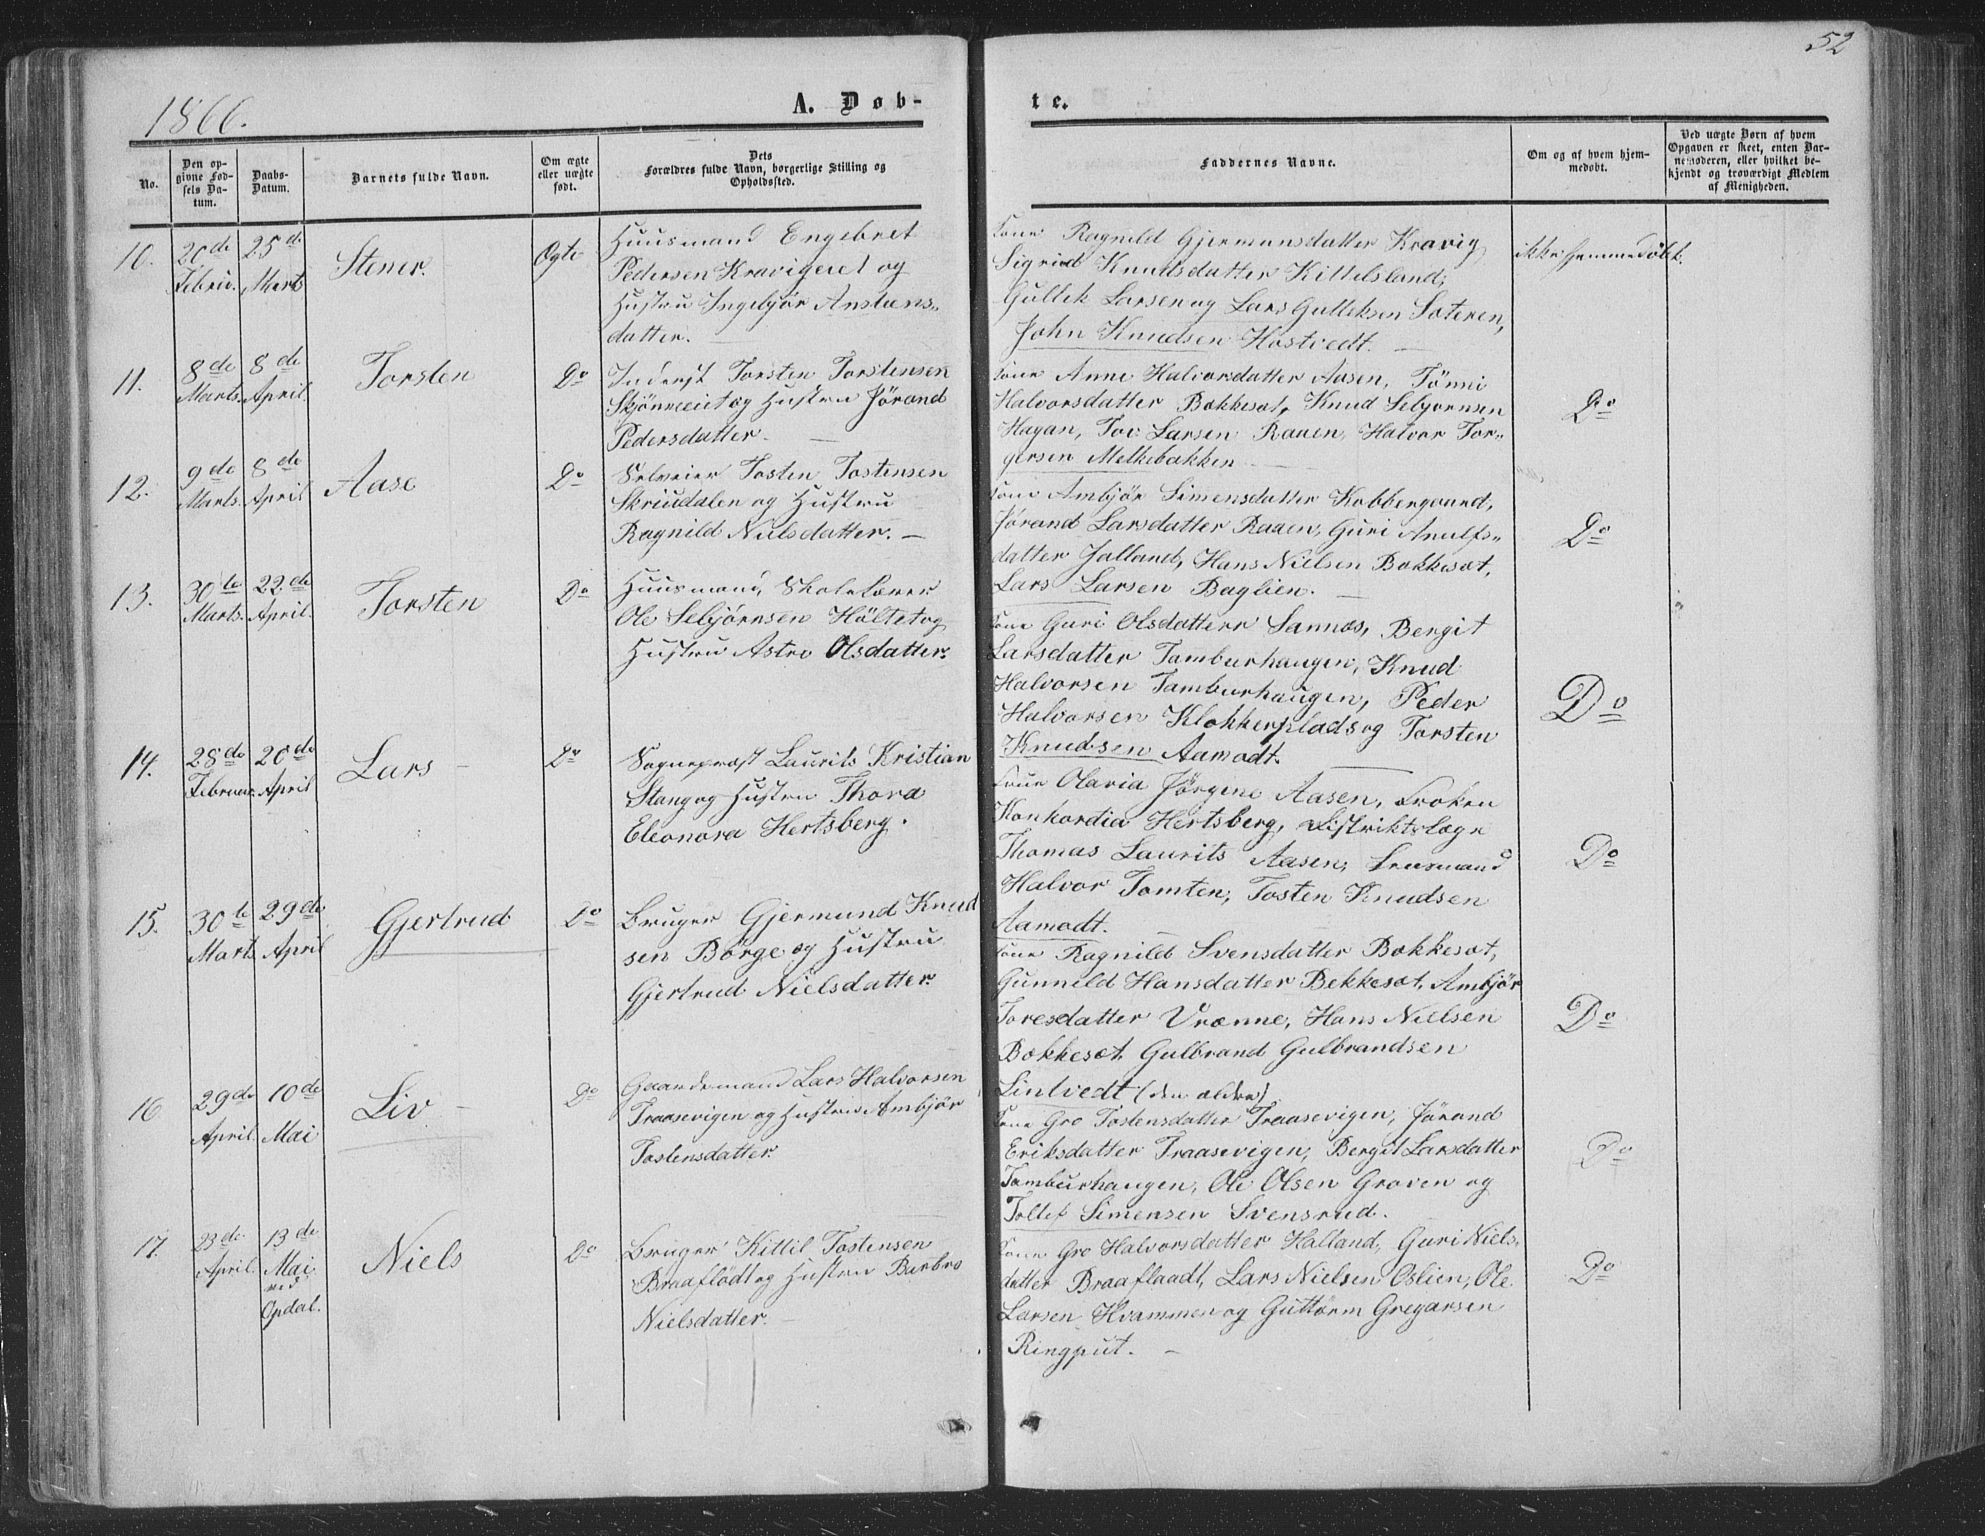 52
1866.
A. Døb-
te.
No.
Den op-
givne Fød-
sels Da-
tum.
Daabs-
Datum.
Barnets fulde Navn.
Om ægte
eller uægte
født.
Dets
Forældres fulde Navn, borgerlige Stilling og
Opholdssted.
Faddernes Navne.
Om og af hvem hjem-
medøbt.
Ved uægte Børn af hvem
Opgaven er skeet, enten Bar-
nemoderen, eller hvilket be-
kjendt og troværdigt Medlem
af Menigheden.
10.
20de
Februr.
25de
Marts
Stener.
Ægte
Huusmand Engebret
Pedersen Kravigeiet og
Hustru Ingebjør Anstens-
datter.
Kone Ragnild Gjermundsdatter Kravig
Sigrid Knudsdatter Kittelsland,
Gullik Larsen og Lars Gulliksen Sateren,
John Knudsen Hostvedt.
ikke hjemmedøbt.
11.
8de
Marts.
8de
April.
Torsten
Do
Inderst Torsten Torstensen
Skjønneiet og Hustru Jørand
Pedersdatter.
Kone Anne Halvorsdatter Aasen, Tønni
Halvorsdatter Bekkesæt, Knud Sebjørnsen
Hagan, Tov Larsen Raaen, Halvor Tor-
gersen Melkebakken
Do
12.
9de
Marts.
8de
April
Aase
Do
Selveier Tosten Tostensen
Skriudalen og Hustru
Ragnild Nielsdatter.
Kone Ambjør Simensdatter Kobbergaard,
Jørand Larsdatter Raaen, Guri Anulfs-
datter Jalland, Hans Nielsen Bekkesæt,
Lars Larsen Baglien.
Do
13.
30te
Marts.
22de
April.
Torsten
Do
Huusmand, Skolelærer
Ole Sebjørnsen Høltet og
Hustru Astri Olsdatter.
Kone Guri Olsdatter Sannæs, Bergit
Larsdatter Tamburhaugen, Knud
Halvorsen Tamburhaugen, Peder
Halvorsen Klokkerplads og Torsten
Knudsen Aamodt.
Do
14.
28de
Februar.
20de
April
Lars
Do
Sogneprest Laurits Kristian
Stang og Hustru Thora
Eleonora Hertsberg.
Frue Olavia Jørgene Aasen, Frøken
Konkordia Hertsberg, Distriktslæge
Thomas Laurits Aasen, Lensmand
Halvor Tomten, Tosten Knudsen
Aamodt.
Do
15.
30te
Marts
29de
April
Gjertrud
Do
Bruger Gjermund Knud
sen Børge og Hustru
Gjertrud Nielsdatter.
Kone Ragnild Svensdatter Bekkesæt,
Gunnild Hansdatter Bekkesæt, Ambjør
Toresdatter Vrænne, Hans Nielsen
Bekkesæt, Gulbrand Gulbrandsen
Lintvedt (den ældre)
Do
16
29de
April.
10de
Mai
Liv
Do
Gaardemand Lars Halvorsen
Traasevigen og Hustru Ambjør
Tostensdatter.
Kone Gro Tostensdatter Traasevigen, Jørand
Eriksdatter Traasevigen, Bergit Larsdatter
Tamburhaugen, Ole Olsen Groven og
Tollef Simensen Svensrud.
Do
17.
23de
April.
13de
Mai
ved
Opdal.
Niels
Do
Bruger Kittil Tostensen
Braaflødt og Hustru Barbro
Nielsdatter.
Kone Gro Halvorsdatter Halland, Guri Niels-
datter Braaflaadt, Lars Nielsen Oslien, Ole
Larsen Hvammen og Guttorm Gregarsen
Ringput.
Do